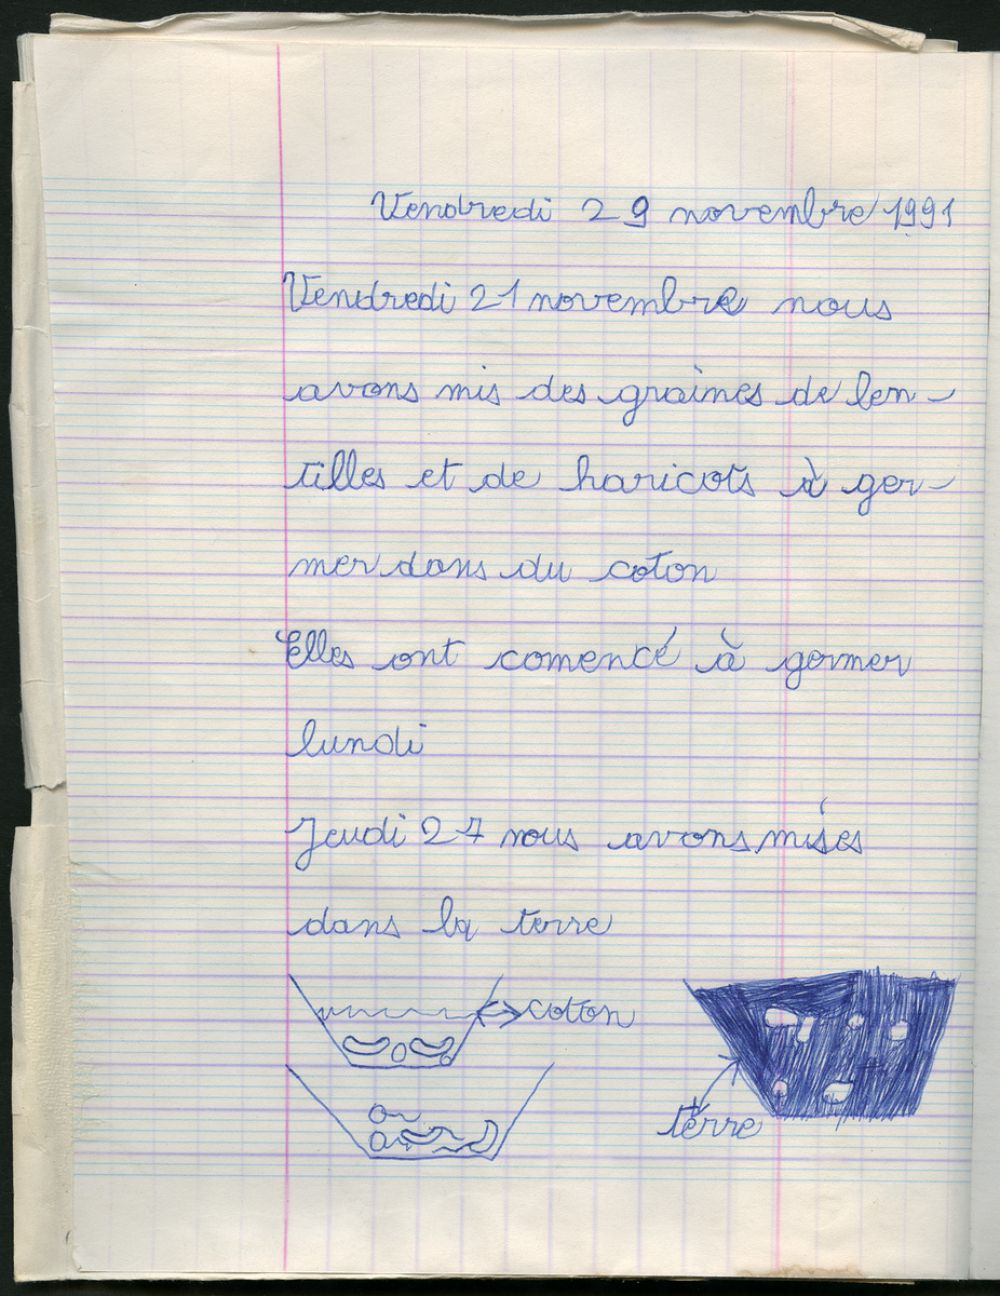 Vendredi 29 novembre 1991
Vendredi 21 novembre nous
avons mis des graines de len-
tilles et de haricots à ger-
mer dans du coton
Elles ont comencé à germer
lundi
Jeudi 27 nous avons mises
dans la terre
coton
terre